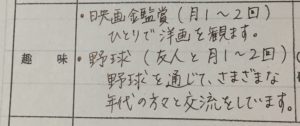 趣味
・映画鑑賞（月1〜2回）
ひとりで洋画を観ます。
・野球（友人と月1〜2回）
野球を通じて、さまざまな
年代の方々と交流をしています。